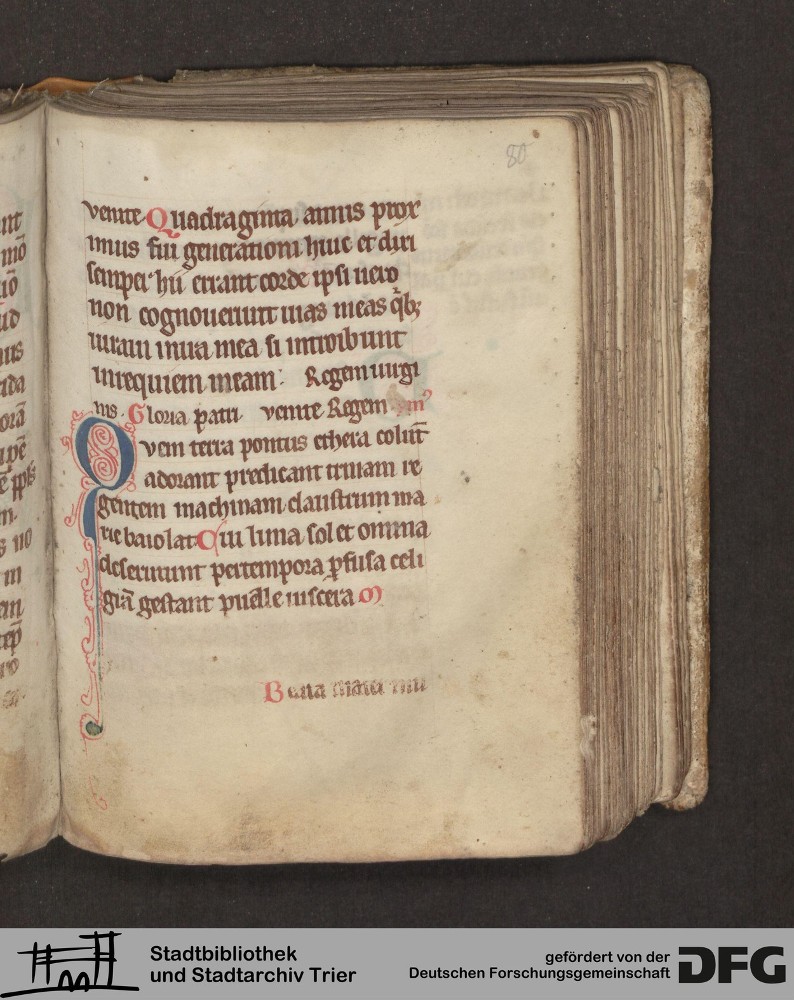 80
venite Quadraginta annis prox
imus fui generationi huic et dixi
semper hii errant corde ipsi uero
non cognouerunt uias meas qͥb;
iuraui in ira mea si introibunt
in requiem meam . Regem uirgi
nis . Gloria patri venite Regem ymꝰ
Quem terra pontus ethera colūt
adorant predicant trinam re
gentem machinam claustrum ma
rie baiolat Cui luna sol et omnia
deseruiunt per tempora ꝑfusa celi
grā gestant puelle uiscera
Beata mater
Stadtbibliothek
und Stadtarchiv Trier
gefördert von der
Deutschen Forschungsgemeinschaft
DFG